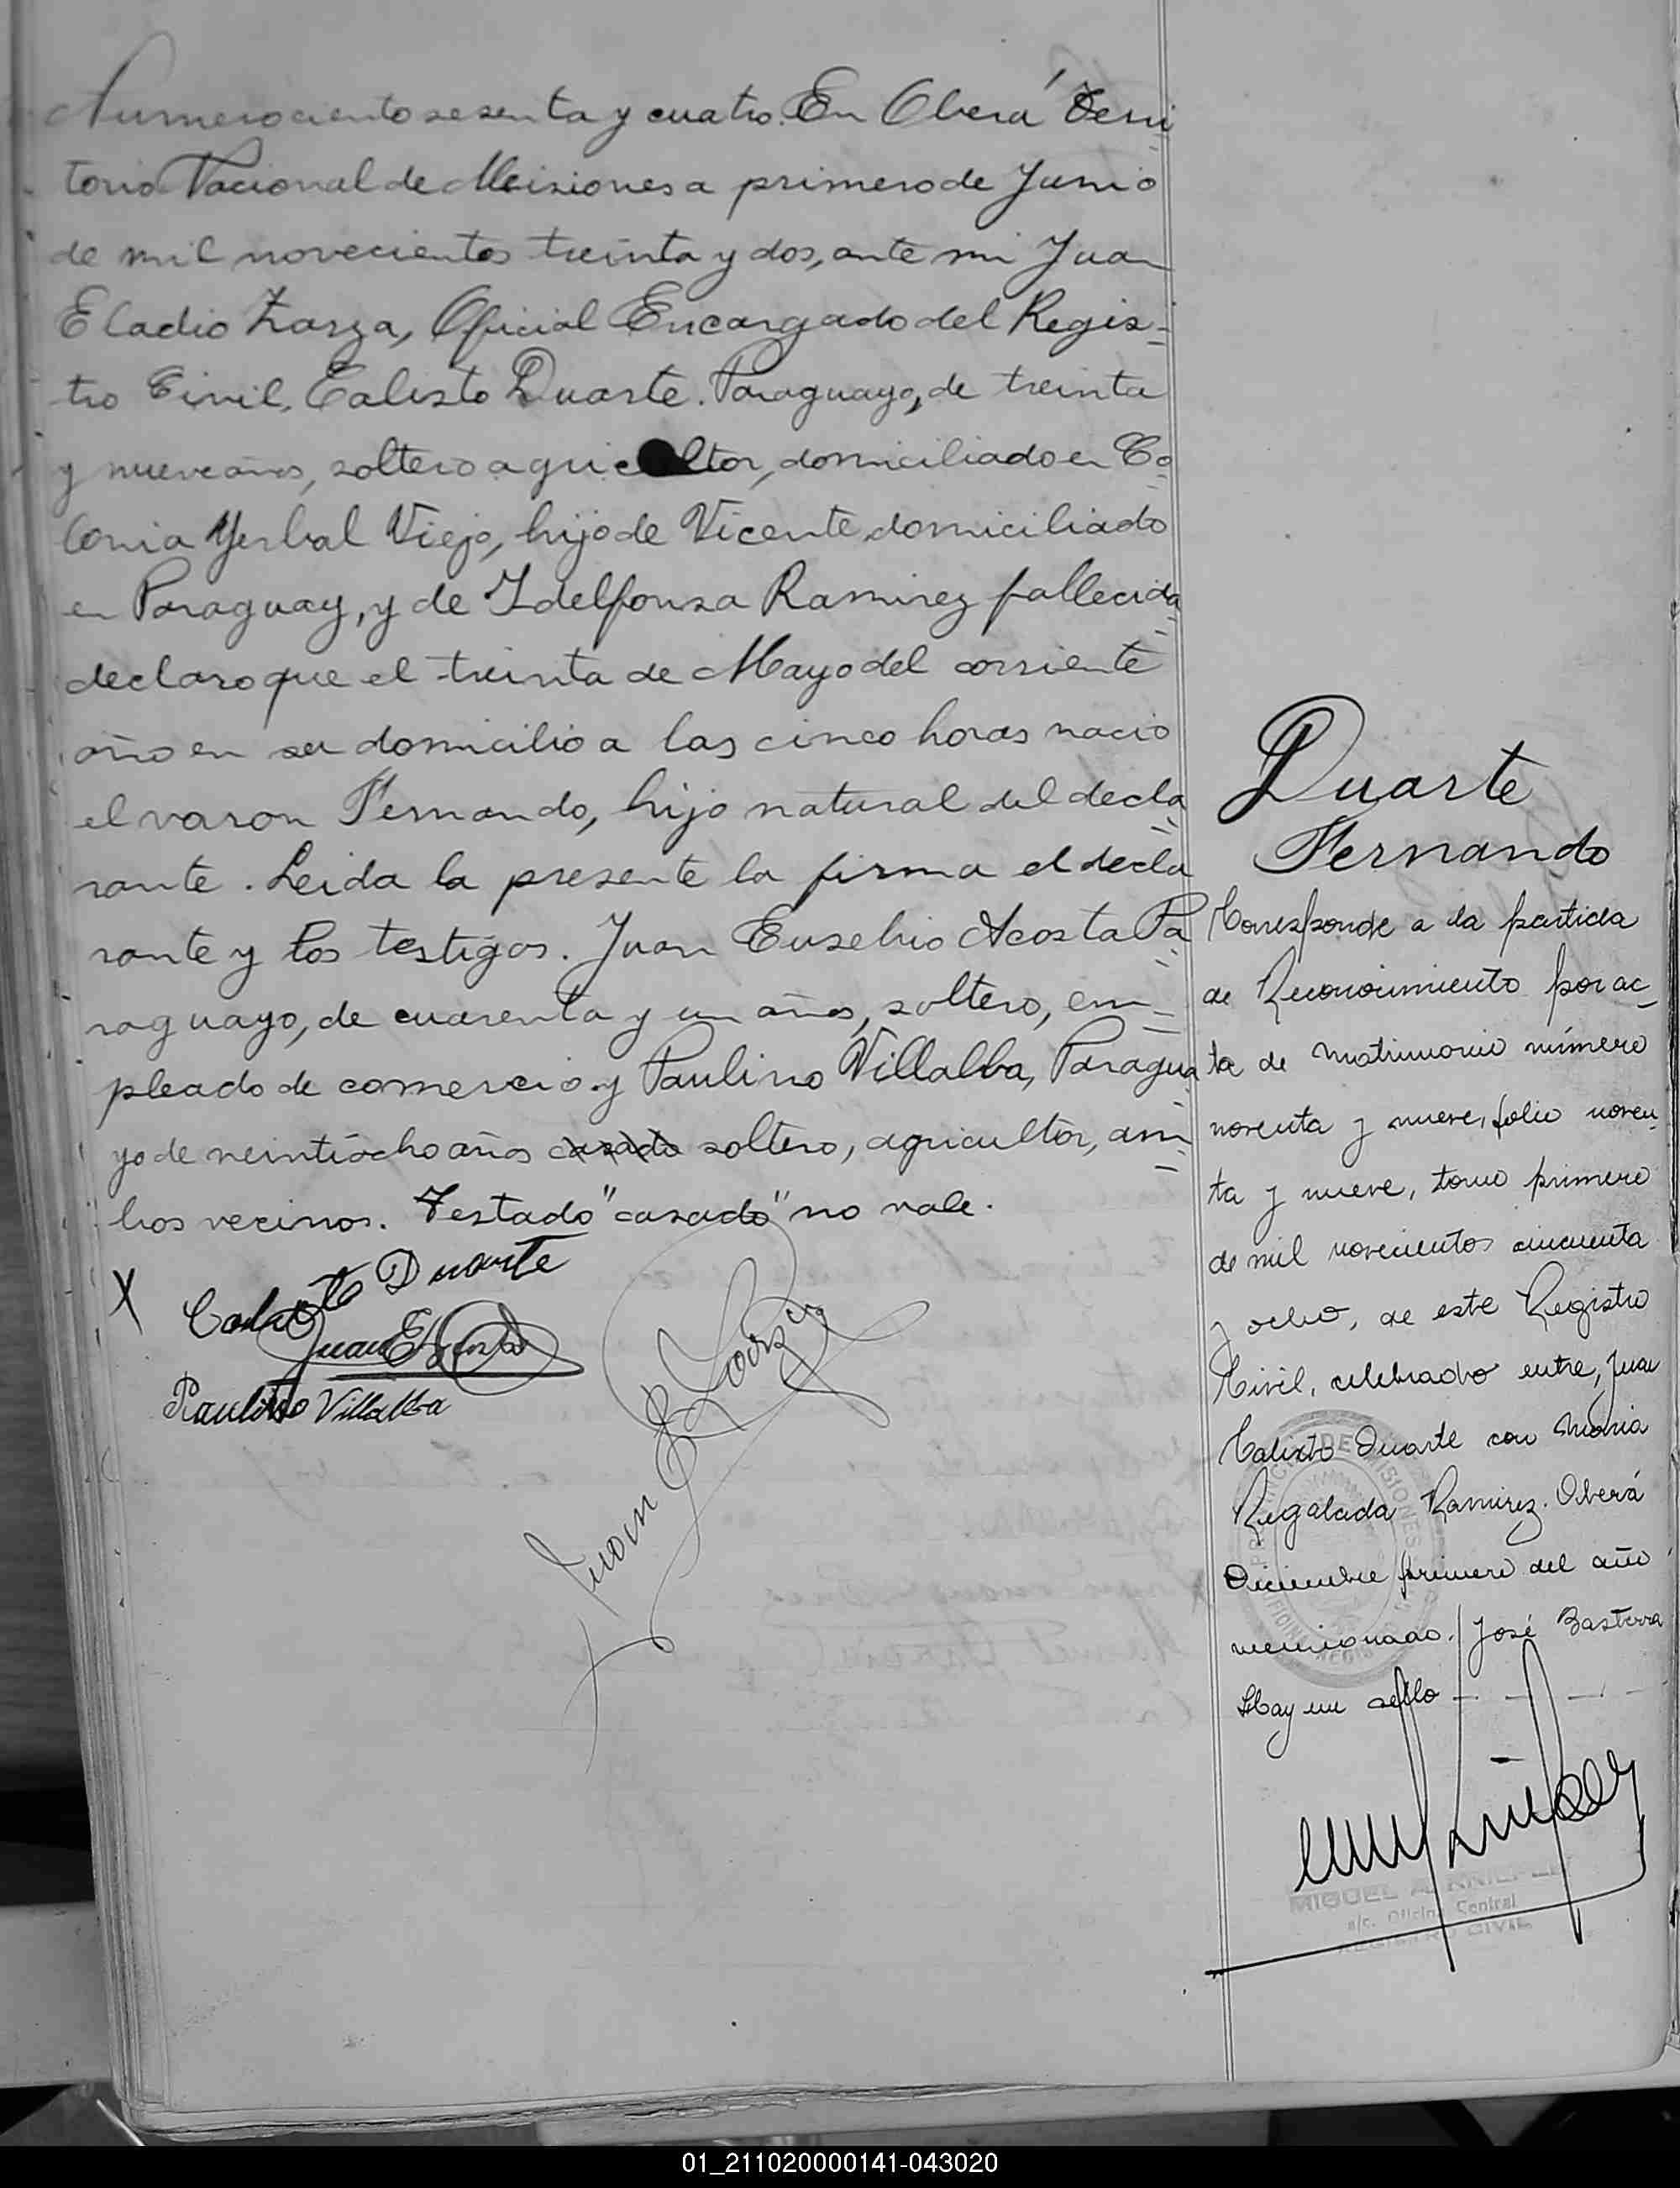 Numero ciento sesenta y cuatro. En Oberá Terri
torio Nacional de Misiones a primero de Junio
de mil novecientos treinta y dos, ante mi Juan
Eladio Zarza, Oficial Encargado del Regis-
tro Civil, Calisto Duarte. Paraguayo, de treinta
y nueve años, soltero agricultor, domiciliado en Co
lonia Yerbal Viejo, hijo de Vicente, domiciliado
en Paraguay, y de Idelfonsa Ramirez fallecida
declaro que el treinta de Mayo del corriente
año en su domicilio a las cinco horas nacio
el varon Fernando, hijo natural del decla
rante. Leida la presente la firma el decla
rante y los testigos. Juan Eusebio Acosta Pa
raguayo, de cuarenta y un años, soltero, em-
pleado de comercio y Paulino Villalba, Paragua
yo de veintiocho años casado soltero, agricultor, am
bos vecinos. Testado "casado" no vale.
X
Calisto Duarte
Juan E Acosta
Paulino Villalba
Juan E Zarza
Duarte
Fernando
Corresponde a la partida
de Reconocimiento por ac-
ta de matrimonio número
noventa y nueve, folio noven
ta y nueve, tomo primero
de mil novecientos cincuenta
y ocho, de este Registro
Civil, celebrado entre, Juan
Calixto Duarte con Maria
Regalada Ramirez. Oberá
Diciembre primero del año
mencionado. José Basterra
Hay un sello
MIGUEL A.
a/c. Oficina Central
REGISTRO CIVIL
01_211020000141-043020